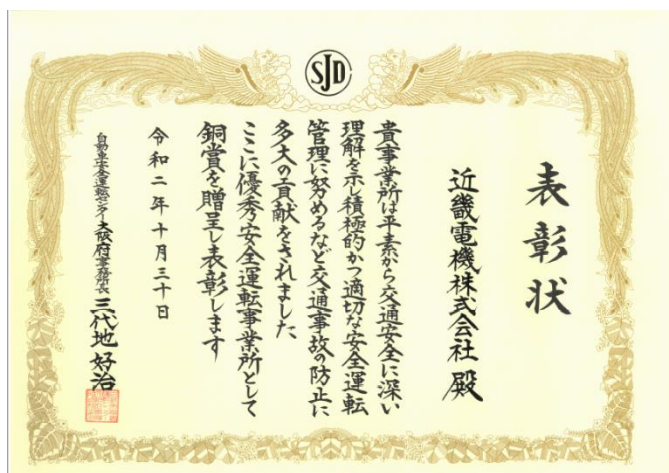 SJD
表彰状
近畿電機株式会社 殿
貴事業所は平素から交通安全に深い
理解を示し積極的かつ適切な安全運転
管理に努めるなど交通事故の防止に
多大の貢献をされました
ここに優秀安全運転事業所として
銅賞を贈呈し表彰します
令和二年十月三十日
自動車安全運転センター大阪府事務所長 三代地 好治